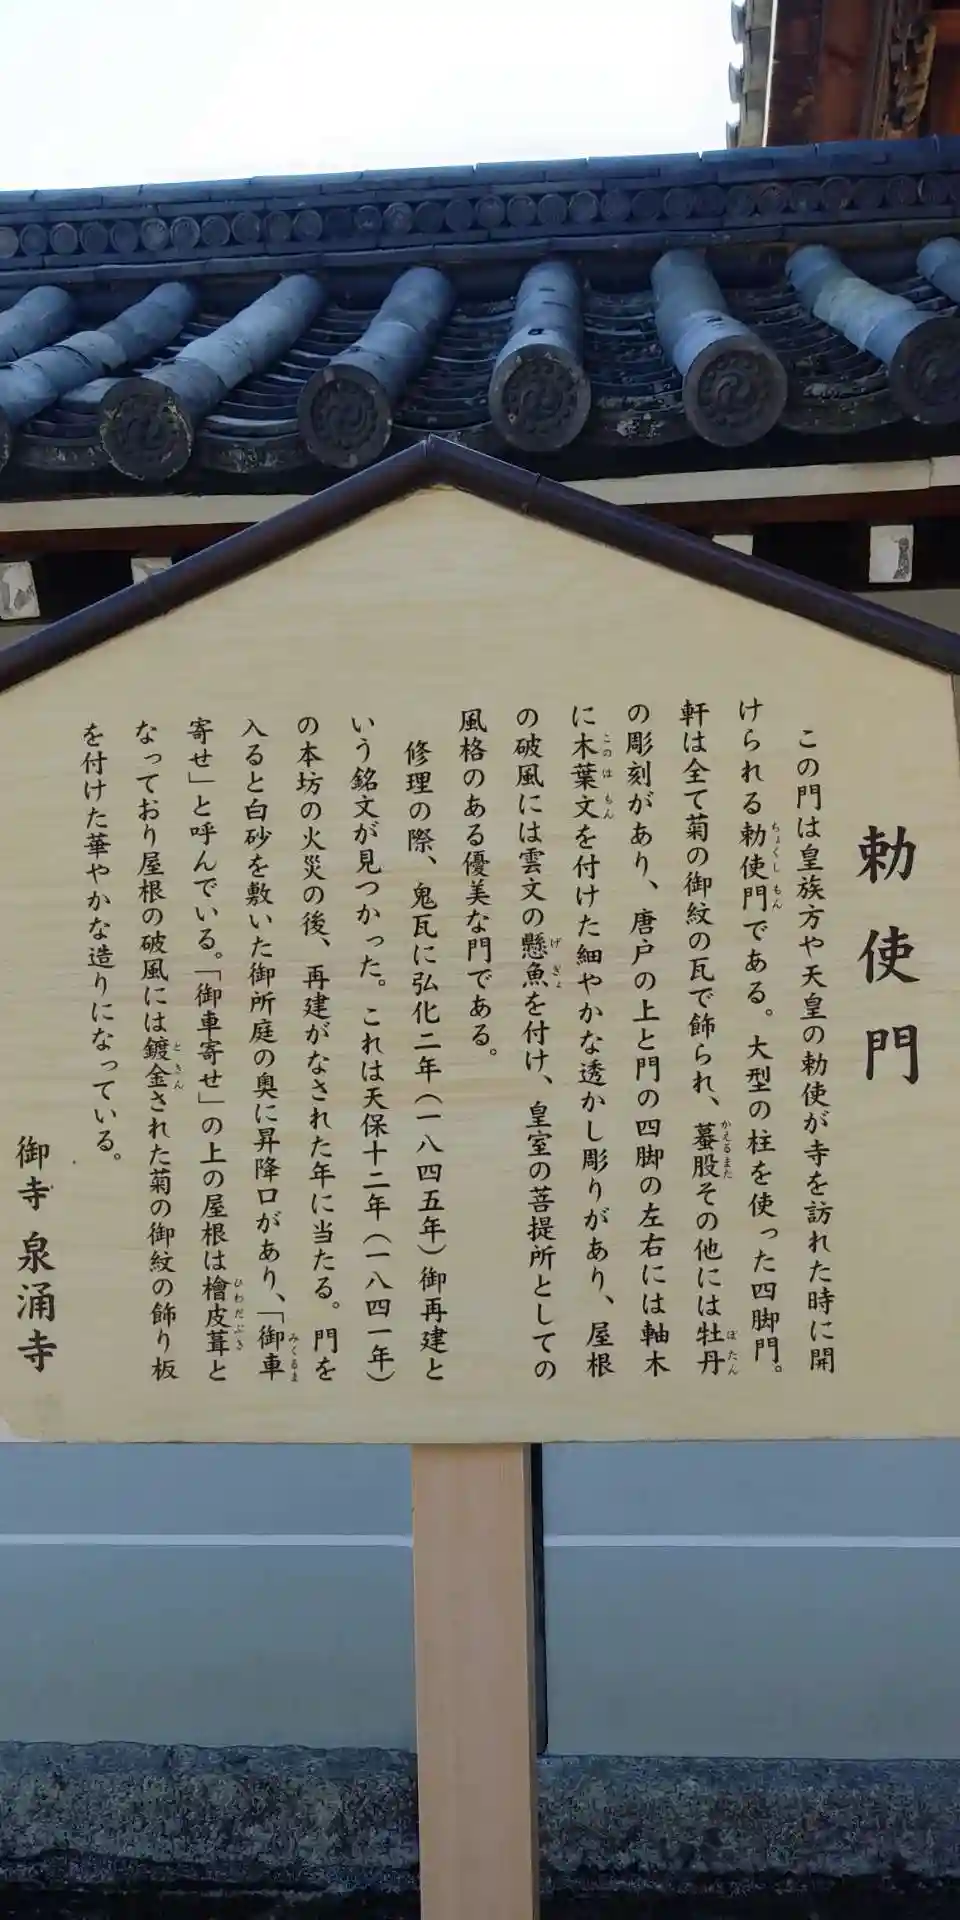 勅使門
この門は皇族方や天皇の勅使が寺を訪れた時に開
けられる勅使門である。大型の柱を使った四脚門。
軒は全て菊の御紋の瓦で飾られ、蟇股その他には牡丹
の彫刻があり、唐戸の上と門の四脚の左右には軸木
に木葉文を付けた細やかな透かし彫りがあり、屋根
の破風には雲文の懸魚を付け、皇室の菩提所としての
風格のある優美な門である。
修理の際、鬼瓦に弘化二年（一八四五年）御再建と
いう銘文が見つかった。これは天保十二年（一八四一年）
の本坊の火災の後、再建がなされた年に当たる。門を
入ると白砂を敷いた御所庭の奥に昇降口があり、「御車
寄せ」と呼んでいる。「御車寄せ」の上の屋根は檜皮葺と
なっており屋根の破風には鍍金された菊の御紋の飾り板
を付けた華やかな造りになっている。
御寺 泉涌寺